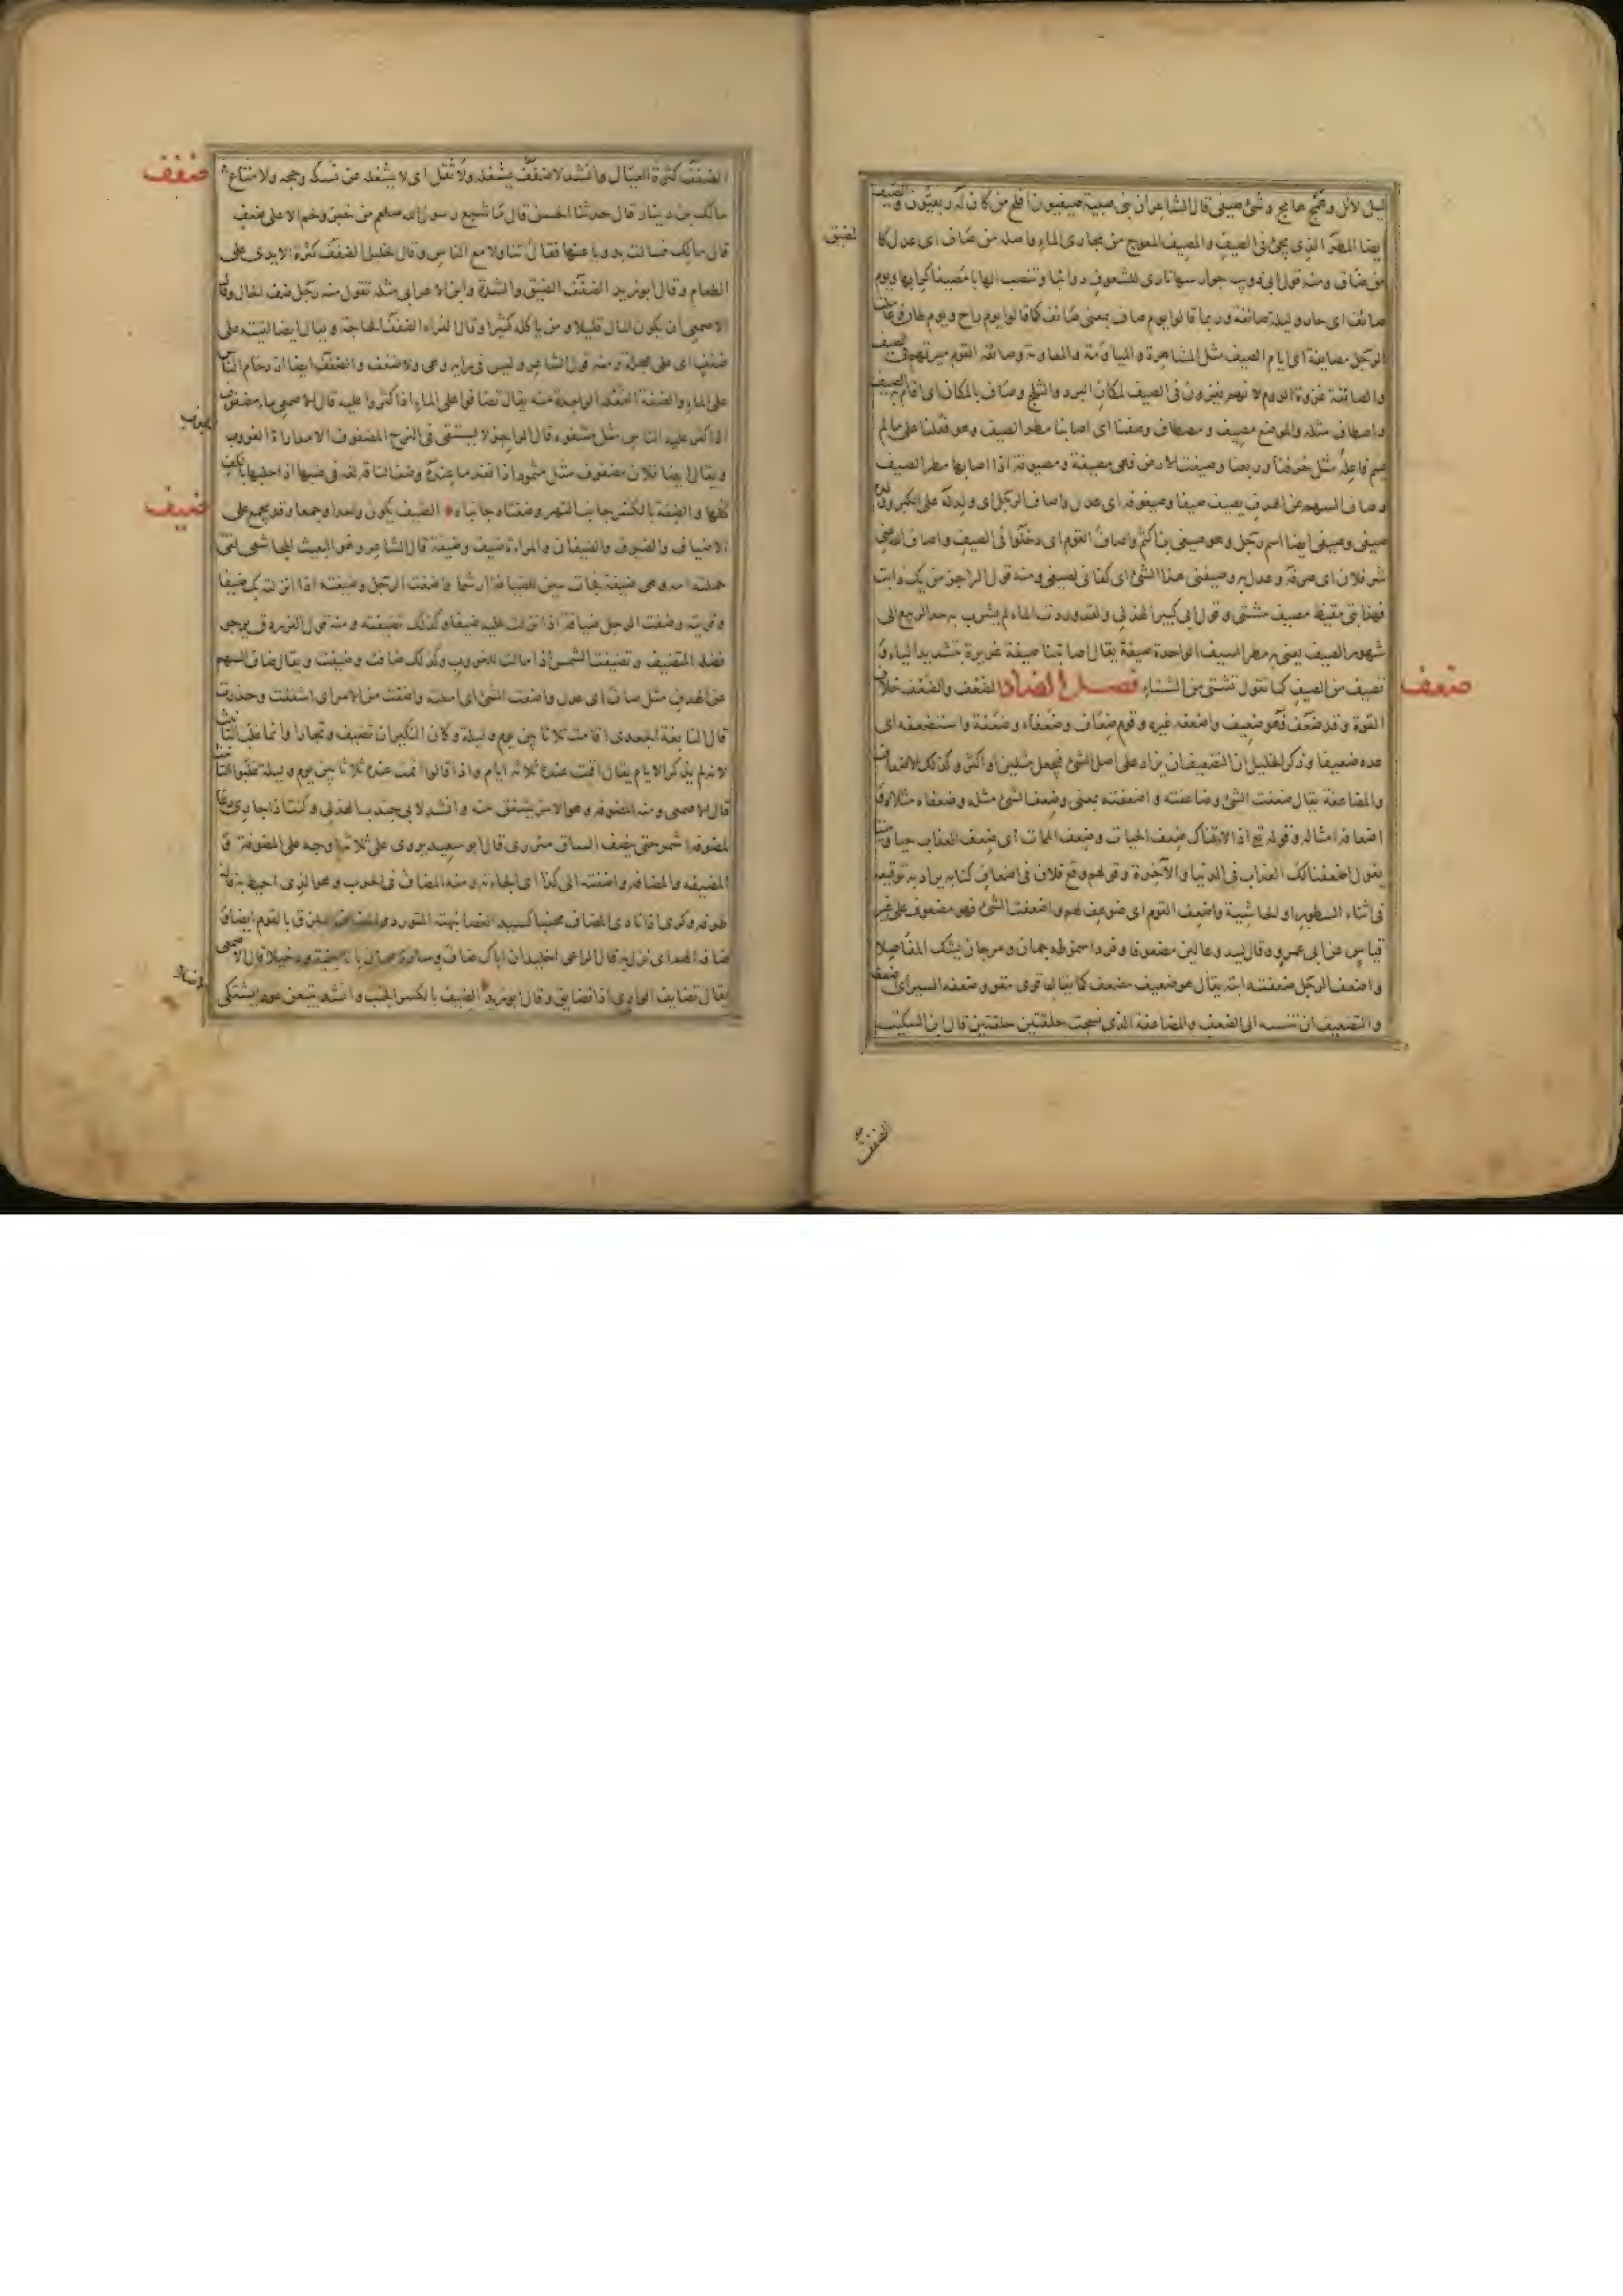 ليل لائل وهمج هامج وشئ صيفى قال الشاعر ان بنى صبية صيفيون افلح من كان له ربعيون والصيف
ايضا المطر الذى يجئ فى الصيف والمصيف المعوج من مجارى الماء واصله من صاف اى عدل كالمضيق
من ضاق ومنه قول ابى ذويب جوارسها تاوى الشعوف دوائبا وتنصب الهابا مصيفا كرابها ويوم
صائف اى حار وليلة صائفة وربما قالوا يوم صاف بمعنى صائف كما قالوا يوم راح ويوم طان وعاملت
الرجل مصايفة اى ايام الصيف مثل المشاهرة والمياومة والمعاومة وصائفة القوم ميرتهم فى الصيف
والصائفة غزوة الروم لانهم يغزون فى الصيف لمكان البرد والثلج وصاف بالمكان اى اقام به الصيف
واصطاف مثله والموضع مصيف ومصطاف وصفنا اى اصابنا مطر الصيف وهو فعلنا على ما لم
يسم فاعله مثل خرفنا وربعنا وصيفت الارض فهى مصيفة ومصيوفة اذا اصابها مطر الصيف
وصاف السهم عن الهدف يصيف صيفا وصيفوفة اى عدل واصاف الرجل اى ولد له على الكبر وولده
صيفى وصيفى ايضا اسم رجل وهو صيفى بن اكثم واصاف القوم اى دخلوا فى الصيف واصاف الله عنى
شر فلان اى صرفه وعدل به وصيفنى هذا الشئ اى كفانى لصيفى ومنه قول الراجز من يك ذا بت
فهذا بتى مقيظ مصيف مشتى وقول ابى كبير الهذلى ولقد وردت الماء لم يشرب به حد الربيع الى
شهور الصيف يعنى به مطر الصيف الواحدة صيفة يقال اصابتنا صيفة غزيرة بتشديد الياء و
تصيف من الصيف كما تقول تشتى من الشتاء فصل الضاد الضعف والضعف خلاف
ضعف
القوة وقد ضعف فهو ضعيف واضعفه غيره وقوم ضعاف وضعفاء وضعفة واستضعفه اى
عده ضعيفا وذكر الخليل ان التضعيف ان يزاد على اصل الشئ فيجعل مثلين او اكثر وكذلك الاضعاف
والمضاعفة يقال ضعفت الشئ وضاعفته واضعفته بمعنى وضعف الشئ مثله وضعفاه مثلاه و
اضعافه امثاله وقوله تع اذا لاذقناك ضعف الحيات وضعف الممات اى ضعف العذاب حيا وميتا
يقول اضعفنا لك العذاب فى الدنيا والآخرة وقولهم وقع فلان فى اضعاف كتابه يراد به توقيعه
فى اثناء السطور او الحاشية واضعف القوم اى ضوعف لهم واضعفت الشئ فهو مضعوف على غير
قياس عن ابى عمرو وقال لبيد وعالين مضعوفا وفردا سموطه جمان ومرجان يشك المفاصلا
واضعف الرجل ضعفت دابته يقال هو ضعيف مضعف كما يقال قوى مقو وضعفه السير اى اضعفه
والتضعيف ان تنسبه الى الضعف والمضاعفة الذى نسجت حلقتين حلقتين قال ابن السكيت
الضفف
ضفف
الضفف كثرة العيال وانشد لا ضفف يشغله ولا ثقل اى لا يشغله عن نسكه وحجه ولا متاع
مالك بن دينار قال حدثنا الحسن قال ما شبع رسول الله صلعم من خبز ولحم الا على ضفف
قال مالك فسالت بدويا عنها فقال تناولا مع الناس وقال الخليل الضفف كثرة الايدى على
الطعام وقال ابو زيد الضفف الضيق والشدة وابن الاعرابى مثله تقول منه رجل ضف الحال وقال
الاصمعى ان يكون المال قليلا ومن ياكله كثيرا وقال الفراء الضفف الحاجة ويقال ايضا لقيته على
ضفف اى على عجلة ومنه قول الشاعر وليس فى رايه وهى ولا ضفف والضفف ايضا ازدحام الناس
على الماء والضفة الفعلة الواحدة منه يقال تضافوا على الماء اذا كثروا عليه قال الاصمعى ماء مضفوف
اذا كثر عليه الناس مثل مشفوه قال الراجز لا يستقى فى النزح المضفوف الا مدارة الغروب
الجوف
ويقال ايضا فلان مضفوف مثل مثمود اذا نفد ما عنده وضف الناقة لغة فى ضبها اذا حلبها بالكف
كلها والضفة بالكسر جانب النهر وضفتاه جانباه الضيف يكون واحدا وجمعا وقد يجمع على
ضيف
الاضياف والضيوف والضيفان والمراة ضيف وضيفة قال الشاعر وهو البعيث المجاشعى لقى
حملته امه وهى ضيفة فجات بيتن للضيافة ارشما واضفت الرجل وضيفته اذا انزلته بك ضيفا
وقريته وضفت الرجل ضيافة اذا نزلت عليه ضيفا وكذلك تضيفته ومنه قول الفرزدق يرجى
فضله المتضيف وتضيفت الشمس اذا مالت للغروب وكذلك ضافت وضيفت ويقال ضاف السهم
عن الهدف مثل صاف اى عدل واضفت الشئ اى املته واضفت من الامر اى اشفقت وحذرت
قال النابغة الجعدى اقامت ثلاثا بين يوم وليلة وكان النكير ان تضيف وتجارا وانما غلب التانيث
لانه لم يذكر الايام يقال اقمت عنده ثلاثة ايام واذا قالوا اقمت عنده ثلاثا بين يوم وليلة غلبوا التانيث
قال الاصمعى ومنه المضوفة وهو الامر يشفق منه وانشد لابى جندب الهذلى وكنت اذا جارى دعا
لمضوفة اشمر حتى ينصف الساق مئزرى قال ابو سعيد يروى على ثلاثة اوجه على المضوفة و
المضيفة والمضافة واضفته الى كذا اى الجاته ومنه المضاف فى الحرب وهو الذى احيط به قال
طرفة وكرى اذا نادى المضاف محنبا كسيد الغضا نبهته المتورد والمضاف الملزق بالقوم
ضافه الهم اى نزل به قال الراعى اخليد ان اباك ضاف وساده همان باتا جنبة ودخيلا قال الاصمعى
يقال تضايف الوادى اذا تضايق وقال ابو زيد الضيف بالكسر الجنب وانشد يتبعن عودا يشتكى